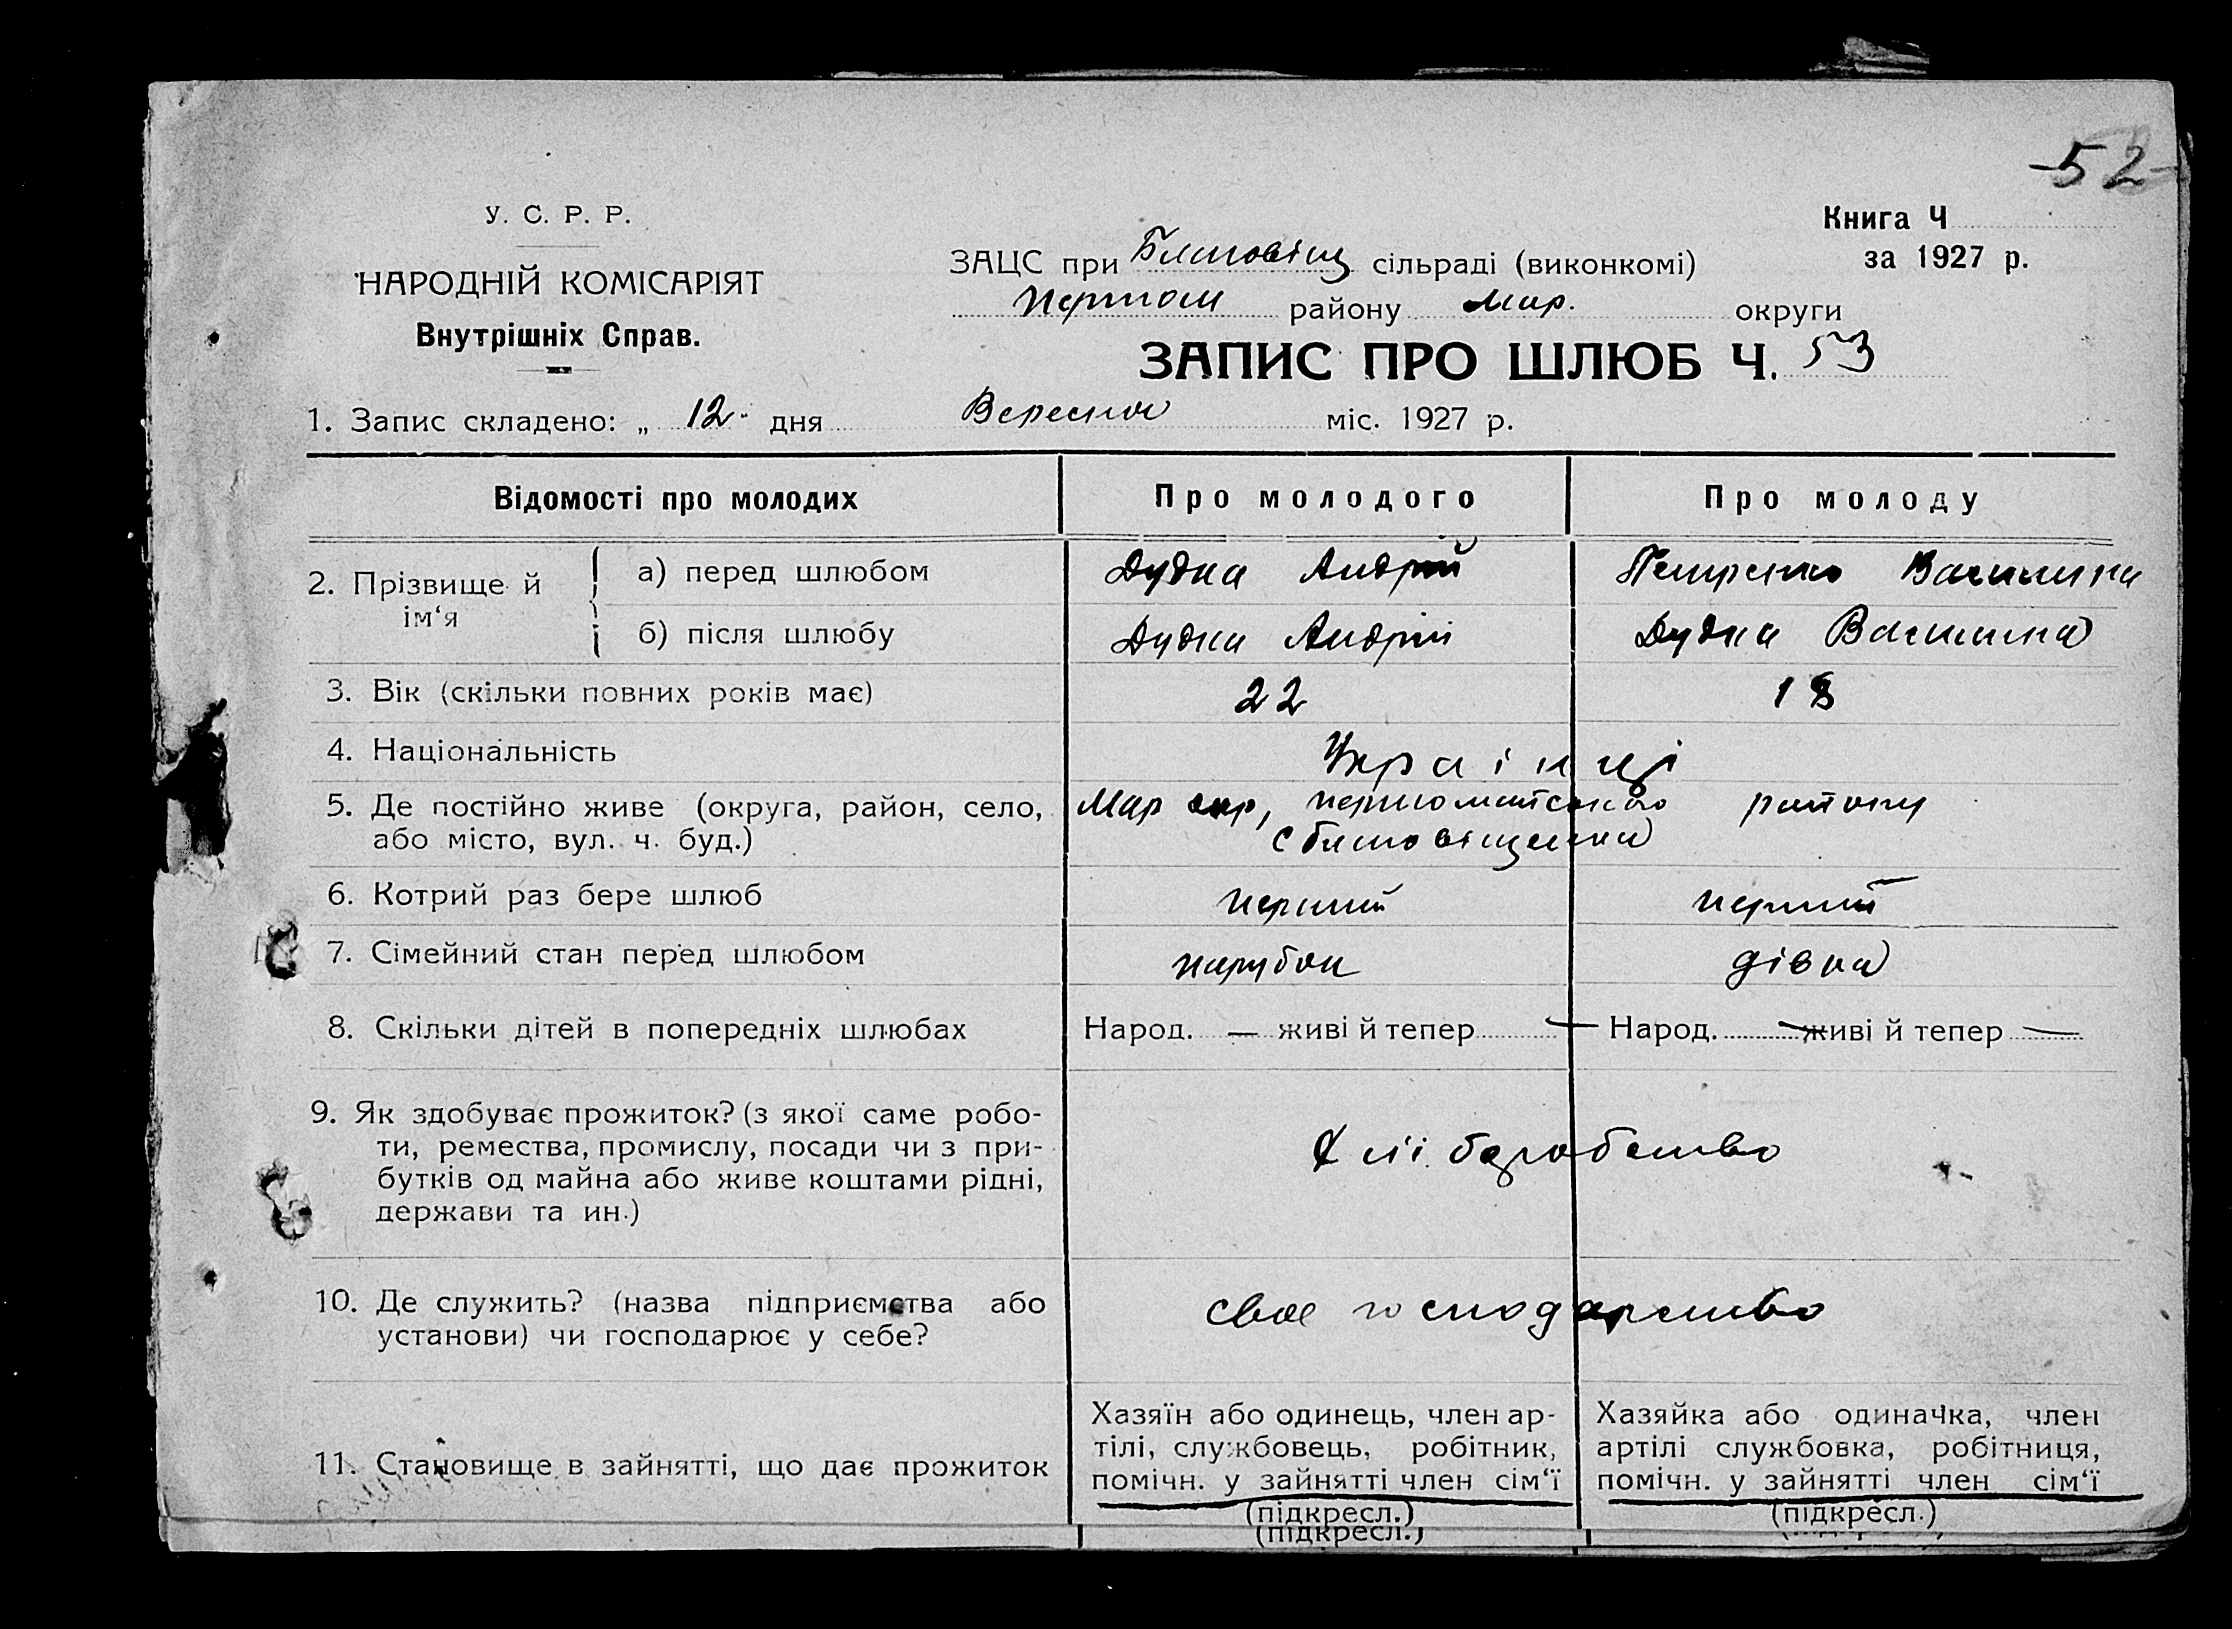 -52-
У. С. Р. Р.
НАРОДНІЙ КОМІСАРІЯТ
Внутрішніх Справ.
Книга Ч
за 1927 р.
ЗАЦС при Благовіщ сільраді (виконкомі)
Першом району Мар. округи
ЗАПИС ПРО ШЛЮБ Ч. 53
1. Запис складено: „ 12 " дня Вересня міс. 1927 р.
Відомості про молодих Про молодого Про молоду
2. Прізвище й ім‘я
а) перед шлюбом Дудка Андрій Петренко Василина
б) після шлюбу Дудка Андрій Дудка Василина
3. Вік (скільки повних років має) 22 18
4. Національність Українці
5. Де постійно живе (округа, район, село, Мар окр, першомайського району
або місто, вул. ч. буд.) с благовіщенка
6. Котрий раз бере шлюб перший перший
7. Сімейний стан перед шлюбом парубок дівка
8. Скільки дітей в попередніх шлюбах Народ. — живі й тепер — Народ. — живі й тепер —
9. Як здобуває прожиток? (з якої саме робо-
ти, ремества, промислу, посади чи з при-
бутків од майна або живе коштами рідні,
держави та ин.)
Хліборобство
10. Де служить? (назва підприємства або
установи) чи господарює у себе?
своє господарство
11. Становище в зайнятті, що дає прожиток
Хазяїн або одинець, член ар-
тілі, службовець, робітник,
помічн. у зайнятті член сім‘ї
(підкресл.)
(підкресл.)
Хазяйка або одиначка, член
артілі службовка, робітниця,
помічн. у зайнятті член сім‘ї
(підкресл.)